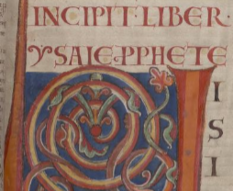 INCIPIT·LIBER
YSAIE·PPHETE
I
S
I